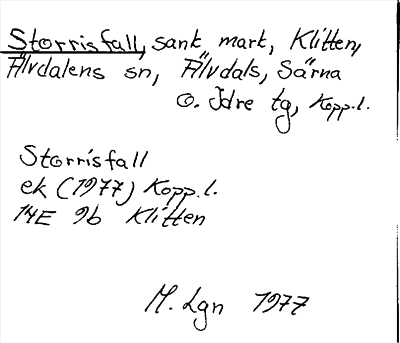 Storrisfall, sank mark, Klitten,
Älvdalens sn, Älvdals, Särna
o. Idre tg, Kopp.l.
Storrisfall
ek (1977) Kopp.l.
14E 9b Klitten
M. Lgn 1977